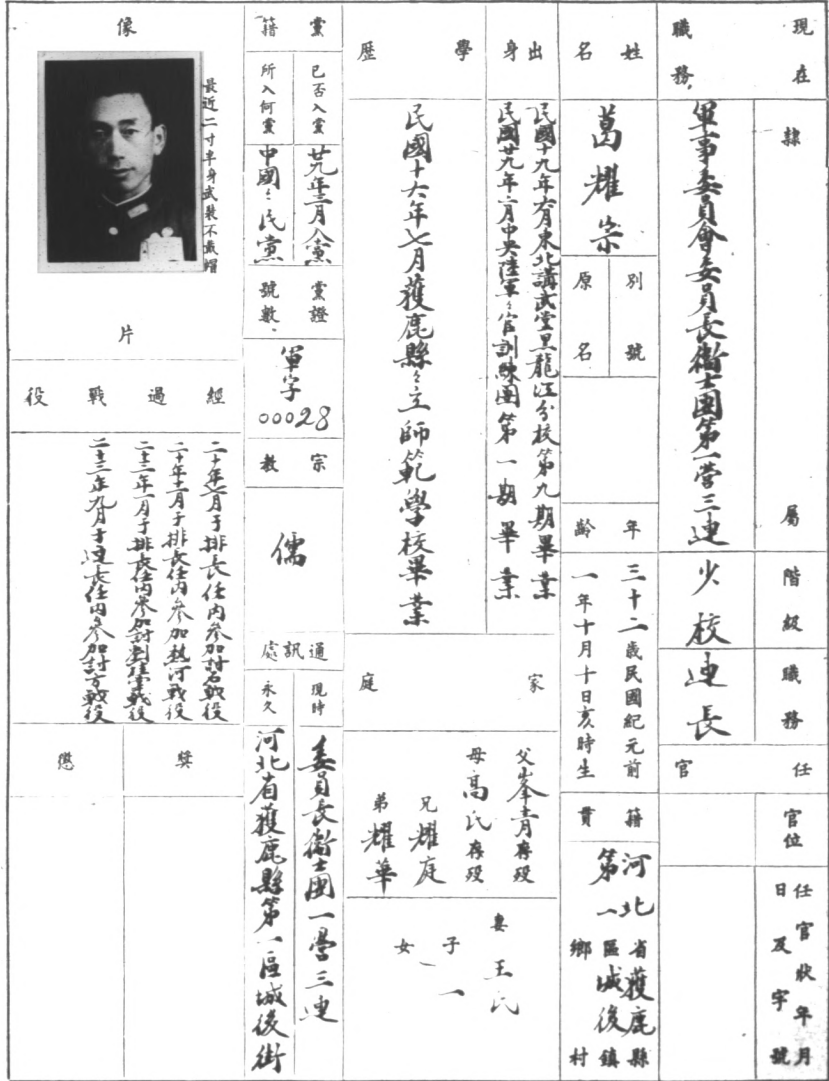 現在職務
隸屬
軍事委員會委員長衞士團第一營三連
階級
少校
職務
連長
任官
官位
任官狀年月日及字號
姓名
葛耀宗
別號
原名
年齡
三十二歲民國紀元前一年十月十日亥時生
籍貫
河北省獲鹿縣
第一區城後鎮
鄉 村
出身
民國十九年六月東北講武堂黑龍江分校第九期畢業
民國廿九年二月中央陸軍々官訓練團第一期畢業
學歷
民國十六年七月獲鹿縣々立師範學校畢業
家庭
父峯青存殁
母高氏存殁
兄耀庭
弟耀華
妻王氏
子一
女一
黨籍
已否入黨
廿九年二月入黨
所入何黨
中國々民黨
黨證號數
軍字00028
宗教
儒
通訊處
現時
委員長衞士團一營三連
永久
河北省獲鹿縣第一區城後街
像片
最近二寸半身武裝不戴帽
經過戰役
二十年七月于排長任內參加討石戰役
二十年十一月于排長任內參加熱河戰役
二十二年一月于排長任內參加討劉桂堂戰役
二十三年九月于連長任內參加討方戰役
獎
懲